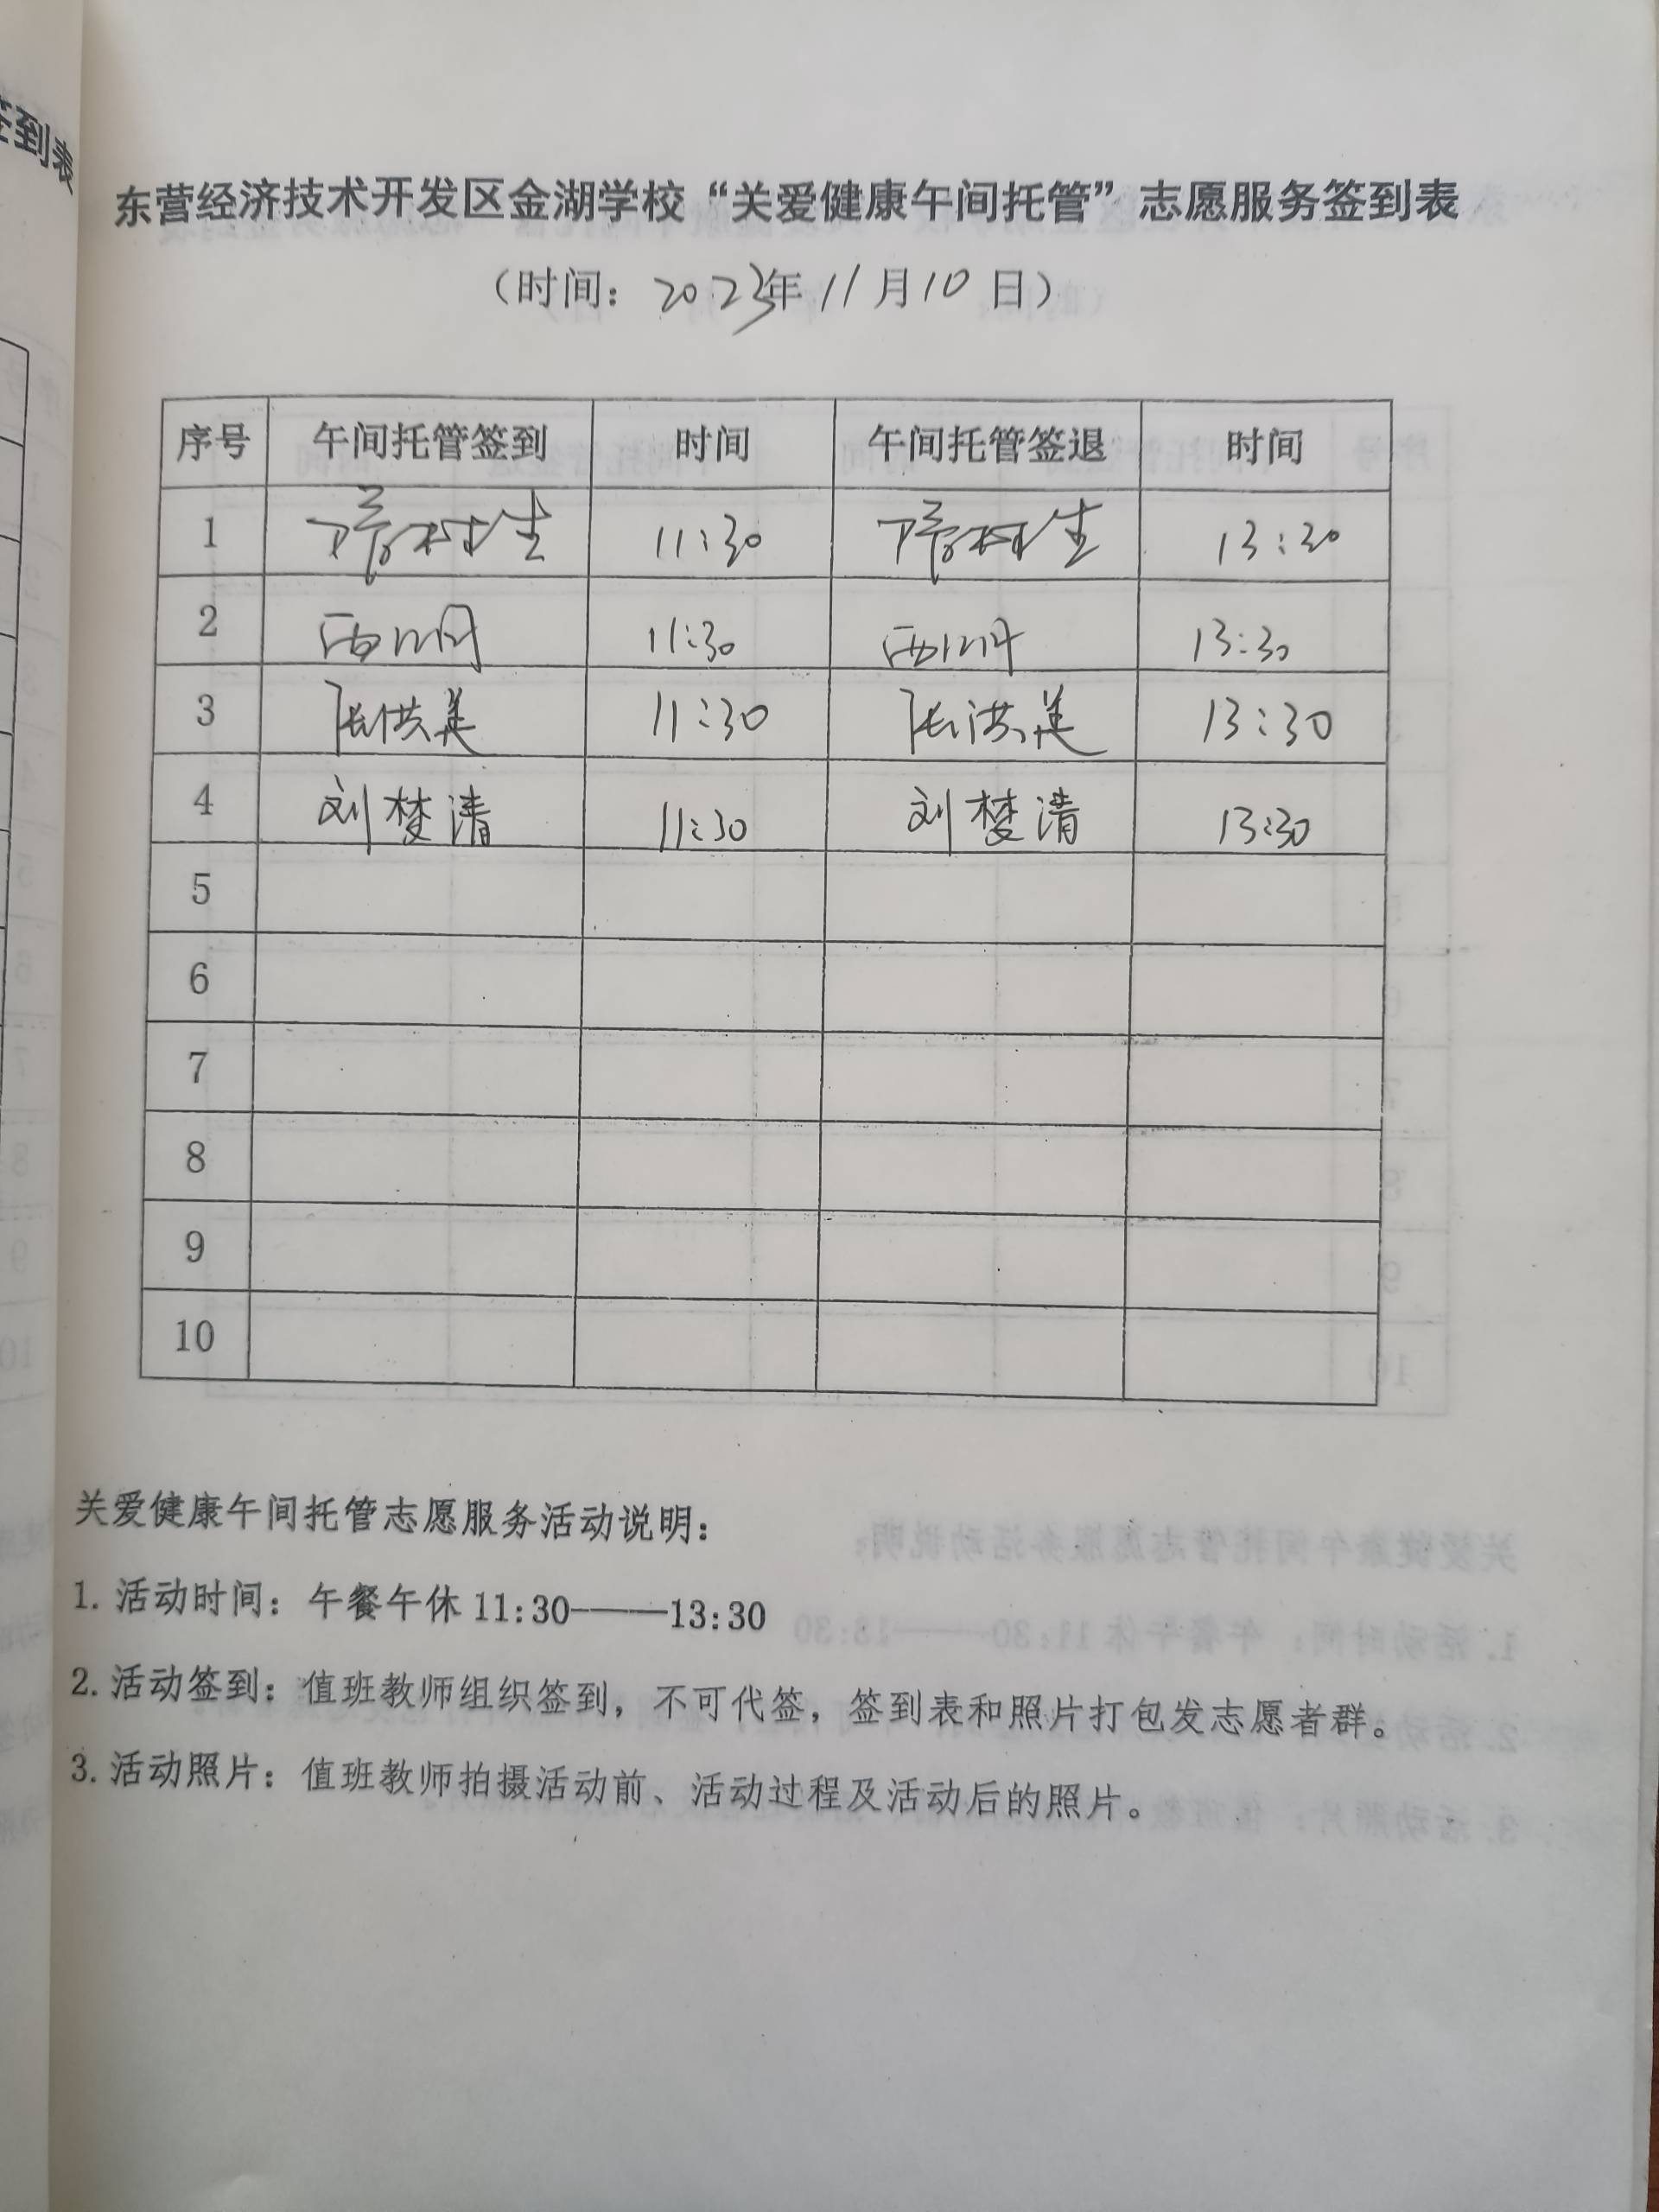 签到表
东营经济技术开发区金湖学校“关爱健康午间托管”志愿服务签到表
（时间：2023年11月10日）
序号 午间托管签到 时间 午间托管签退 时间
1 11:30 13:30
2 11:30 13:30
3 张洪美 11:30 张洪美 13:30
4 刘梦清 11:30 刘梦清 13:30
5
6
7
8
9
10
关爱健康午间托管志愿服务活动说明：
1. 活动时间：午餐午休 11:30———13:30
2. 活动签到：值班教师组织签到，不可代签，签到表和照片打包发志愿者群。
3. 活动照片：值班教师拍摄活动前、活动过程及活动后的照片。